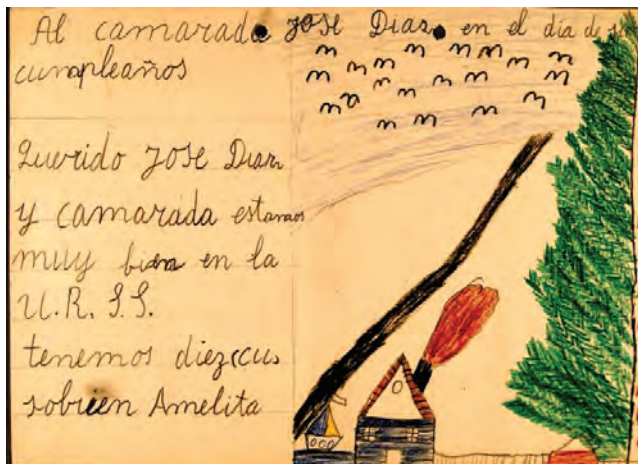 Al camarada JOSE Diaz en el día de su
cumpleaños
Querido JOSE Diaz
y camarada estamos
muy bien en la
U.R.S.S.
tenemos diez
Amelita